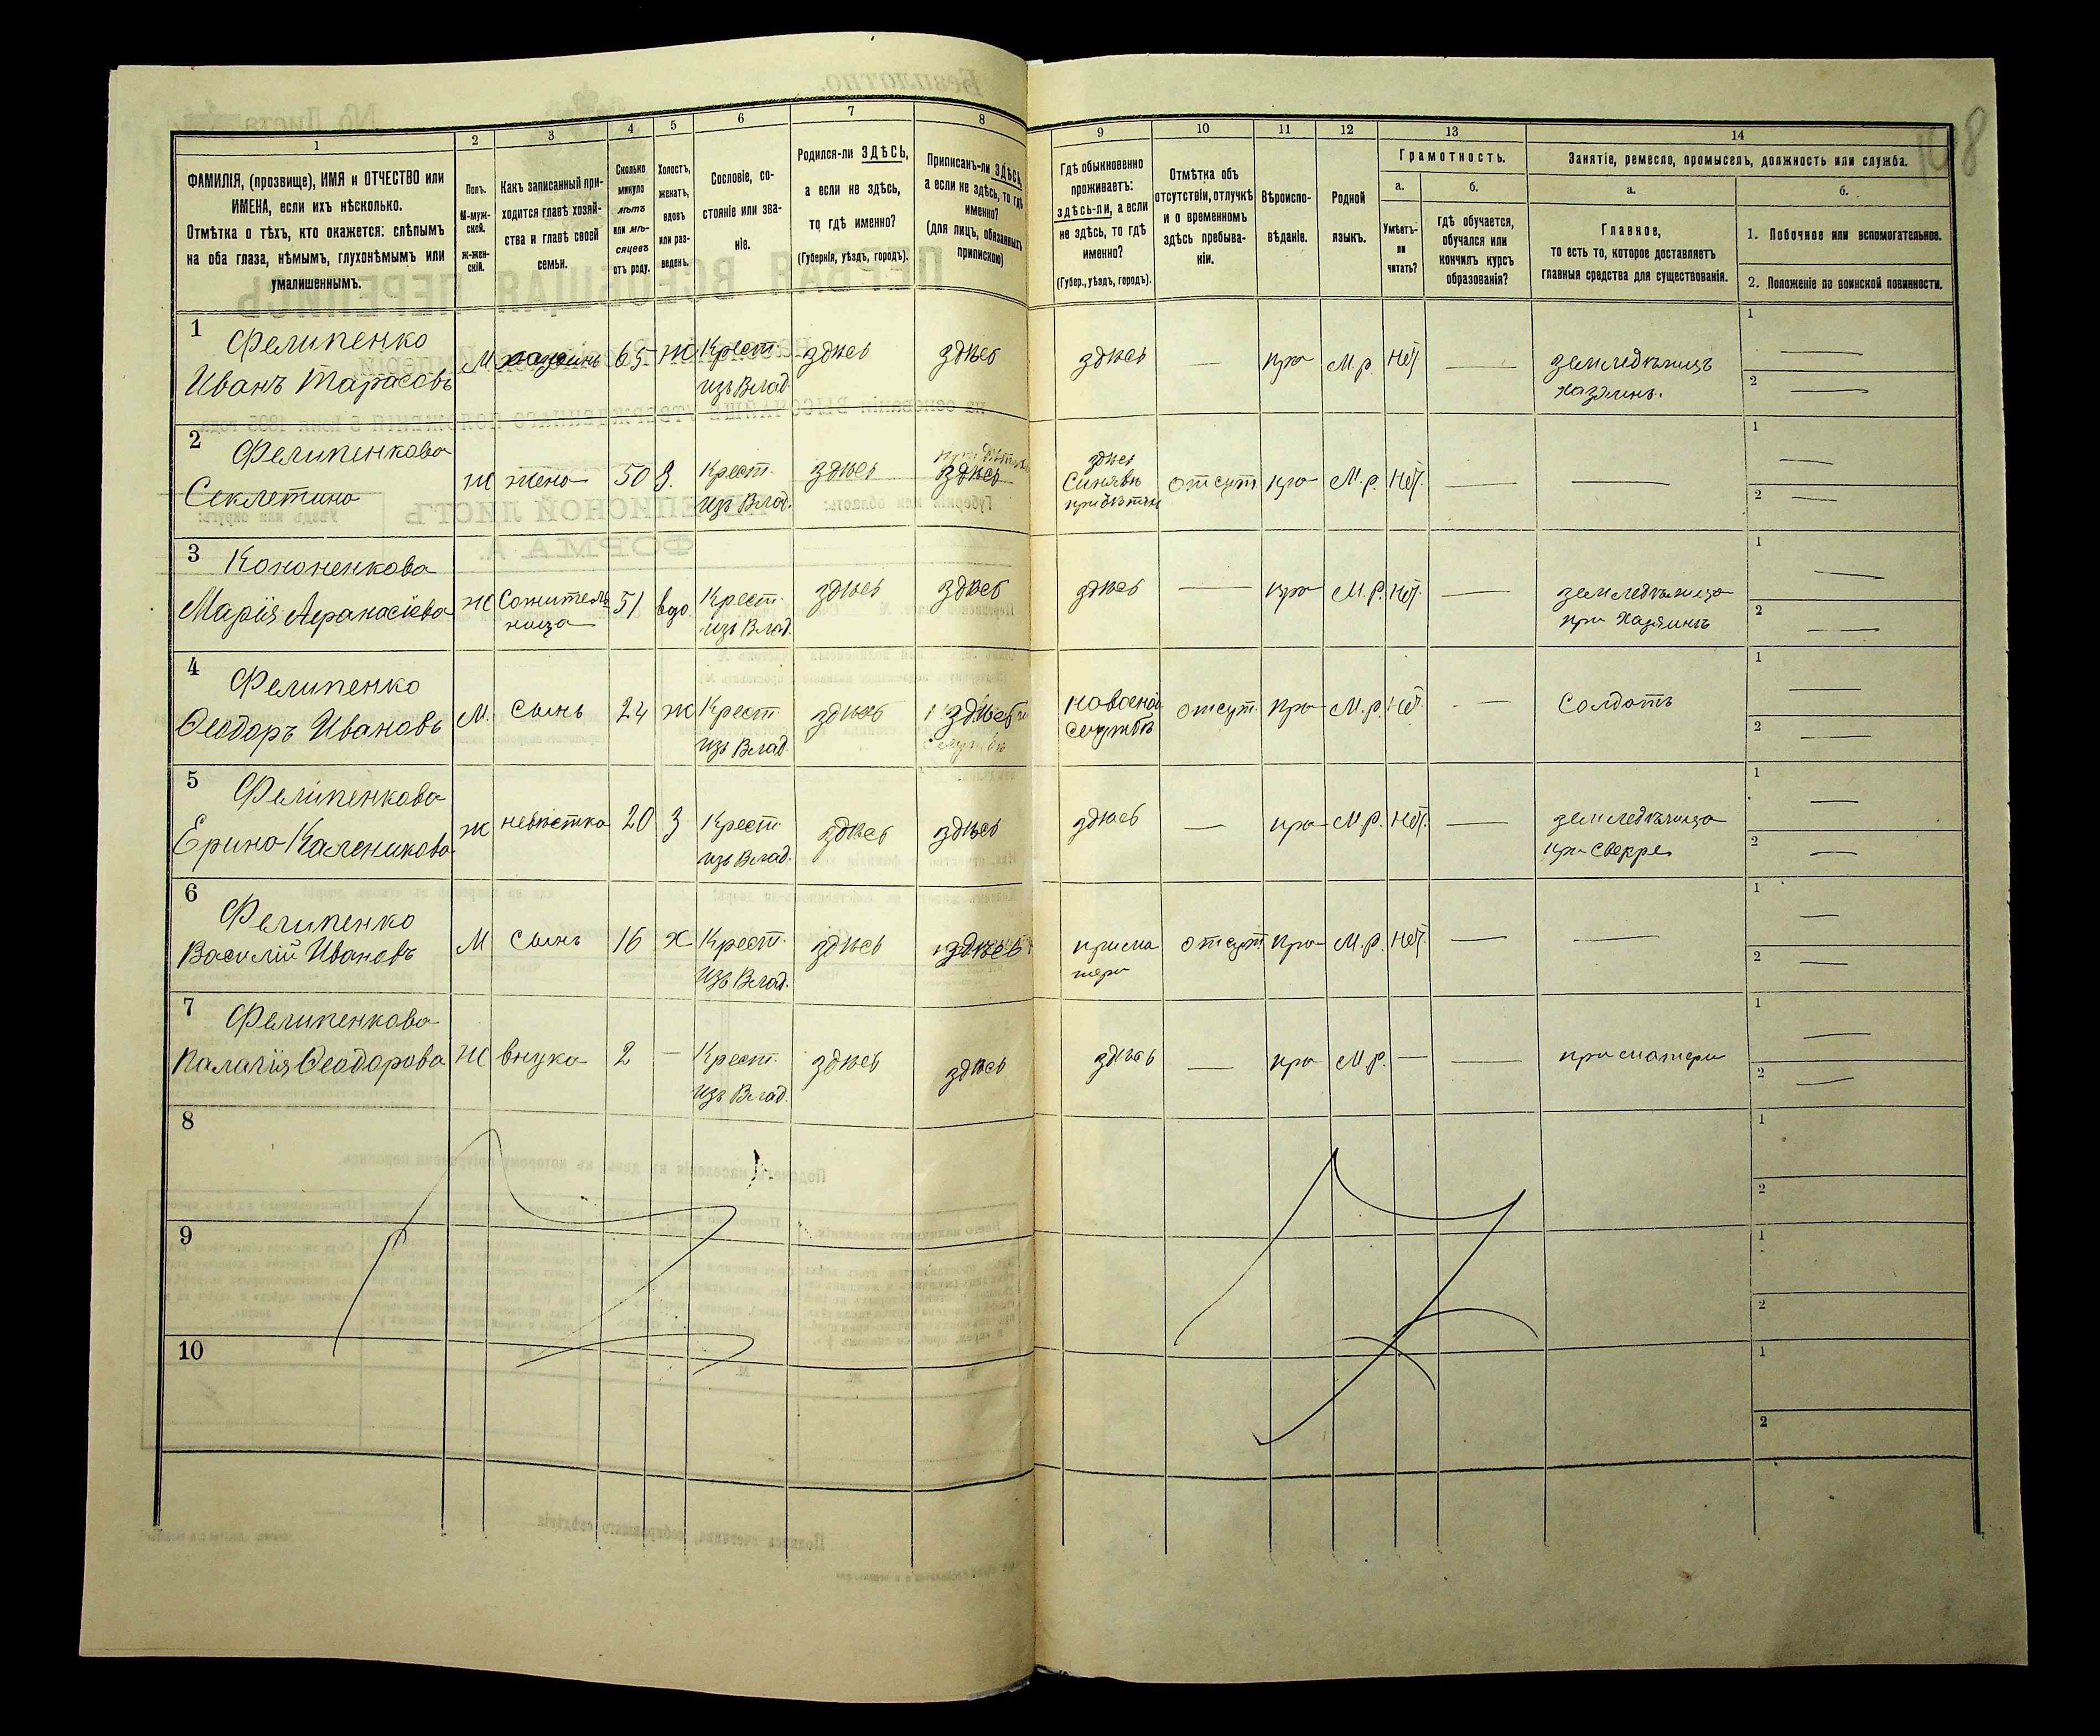 1 2 3 4 5 6 7 8 9 10 11 12 13 14
ФАМИЛІЯ, (прозвище), ИМЯ и ОТЧЕСТВО или
ИМЕНА, если ихъ нѣсколько.
Отмѣтка о тѣхъ, кто окажется: слѣпымъ
на оба глаза, нѣмымъ, глухонѣмымъ или
умалишеннымъ.
Полъ.
М-муж-
ской.
ж-жен-
скій.
Какъ записанный при-
ходится главѣ хозяй-
ства и главѣ своей
семьи.
Сколько
минуло
лѣтъ
или мѣ-
сяцевъ
отъ роду.
Холостъ,
женатъ,
вдовъ
или раз-
веденъ.
Сословіе, со-
стояніе или зва-
ніе.
Родился-ли ЗДѢСЬ,
а если не здѣсь,
то гдѣ именно?
(Губернія, уѣздъ, городъ).
Приписанъ-ли ЗДѢСЬ,
а если не здѣсь, то гдѣ
именно?
(для лицъ, обязанныхъ
припискою)
Гдѣ обыкновенно
проживаетъ:
здѣсь-ли, а если
не здѣсь, то гдѣ
именно?
(Губер., уѣздъ, городъ).
Отмѣтка объ
отсутствіи, отлучкѣ
и о временномъ
здѣсь пребыва-
ніи.
Вѣроиспо-
вѣданіе.
Родной
языкъ.
Грамотность.
а.
Умѣетъ-
ли
читать?
б.
гдѣ обучается,
обучался или
кончилъ курсъ
образованія?
Занятіе, ремесло, промыселъ, должность или служба.
а.
Главное,
то есть то, которое доставляетъ
главныя средства для существованія.
б.
1. Побочное или вспомогательное.
2. Положеніе по воинской повинности.
1 Фелипенко
Иванъ Тарасовъ М хазяинъ 65 Ж Крест. изъ Влад. здѣсь здѣсь здѣсь — пра М.р. нѣт — земледѣлецъ хазяинъ. 1 — 2 —
2 Фелипенкова
Секлетина Ж жена 50 З. Крест. изъ Влад. здѣсь здѣсь здѣсь отсут. пра М.р. нѣт. — — 1 — 2 —
3 Кононенкова
Марія Афанасіева Ж Сожительница 51 вдо. Крест. изъ Влад. здѣсь здѣсь здѣсь — пра М.р. нѣт. — земледѣлица при Хазяинѣ 1 — 2 —
4 Фелипенко
Ѳеодоръ Ивановъ М. Сынъ 24 Ж Крест. изъ Влад. здѣсь здѣсь на военой службѣ отсут. пра М.р. нѣт — Солдатъ 1 — 2 —
5 Фелипенкова
Ерина Каленикова ж невѣстка 20 З Крест. изъ Влад. здѣсь здѣсь здѣсь — пра М.р. нѣт. — земледѣлица при Свекре 1 — 2 —
6 Фелипенко
Василій Ивановъ М Сынъ 16 Х Крест. изъ Влад. здѣсь здѣсь отсут пра М.р. нѣт. — — 1 — 2 —
7 Фелипенкова
Палагія Ѳеодорова Ж внука 2 — Крест. изъ Влад. здѣсь здѣсь здѣсь — пра М.р. — — при матери 1 — 2 —
8 1 2
9 1 2
10 1 2